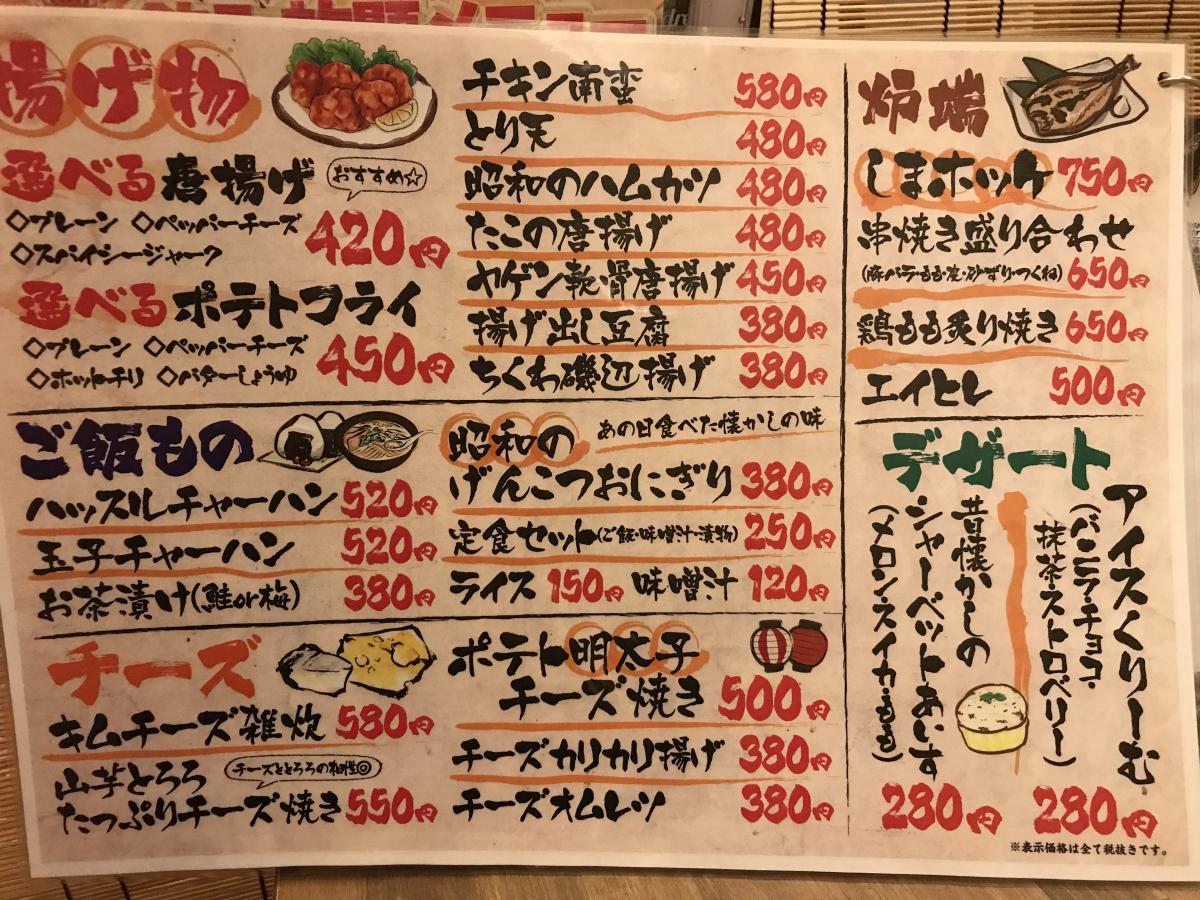 揚げ物
選べる唐揚げ
おすすめ☆
◇プレーン ◇ペッパーチーズ
◇スパイシージャーク
420円
選べるポテトフライ
◇プレーン ◇ペッパーチーズ
◇ホットチリ ◇バターしょうゆ
450円
チキン南蛮 580円
とり天 480円
昭和のハムカツ 480円
たこの唐揚げ 480円
ヤゲン軟骨唐揚げ 450円
揚げ出し豆腐 380円
ちくわ磯辺揚げ 380円
ご飯もの
ハッスルチャーハン 520円
玉子チャーハン 520円
お茶漬け(鮭or梅) 380円
昭和の
あの日食べた懐かしの味
げんこつおにぎり 380円
定食セット(ご飯・味噌汁・漬物) 250円
ライス 150円 味噌汁 120円
チーズ
キムチーズ雑炊 580円
山芋とろろ
チーズととろろの相性◎
たっぷりチーズ焼き 550円
ポテト明太子
チーズ焼き 500円
チーズカリカリ揚げ 380円
チーズオムレツ 380円
炉端
しまホッケ 750円
串焼き盛り合わせ
(豚バラ・もも・皮・砂ずり・つくね) 650円
鶏もも炙り焼き 650円
エイヒレ 500円
デザート
アイスくりーむ
(バニラ・チョコ・
抹茶・ストロベリー)
280円
昔懐かしの
シャーベットあいす
(メロン・スイカ・もも)
280円
※表示価格は全て税抜きです。